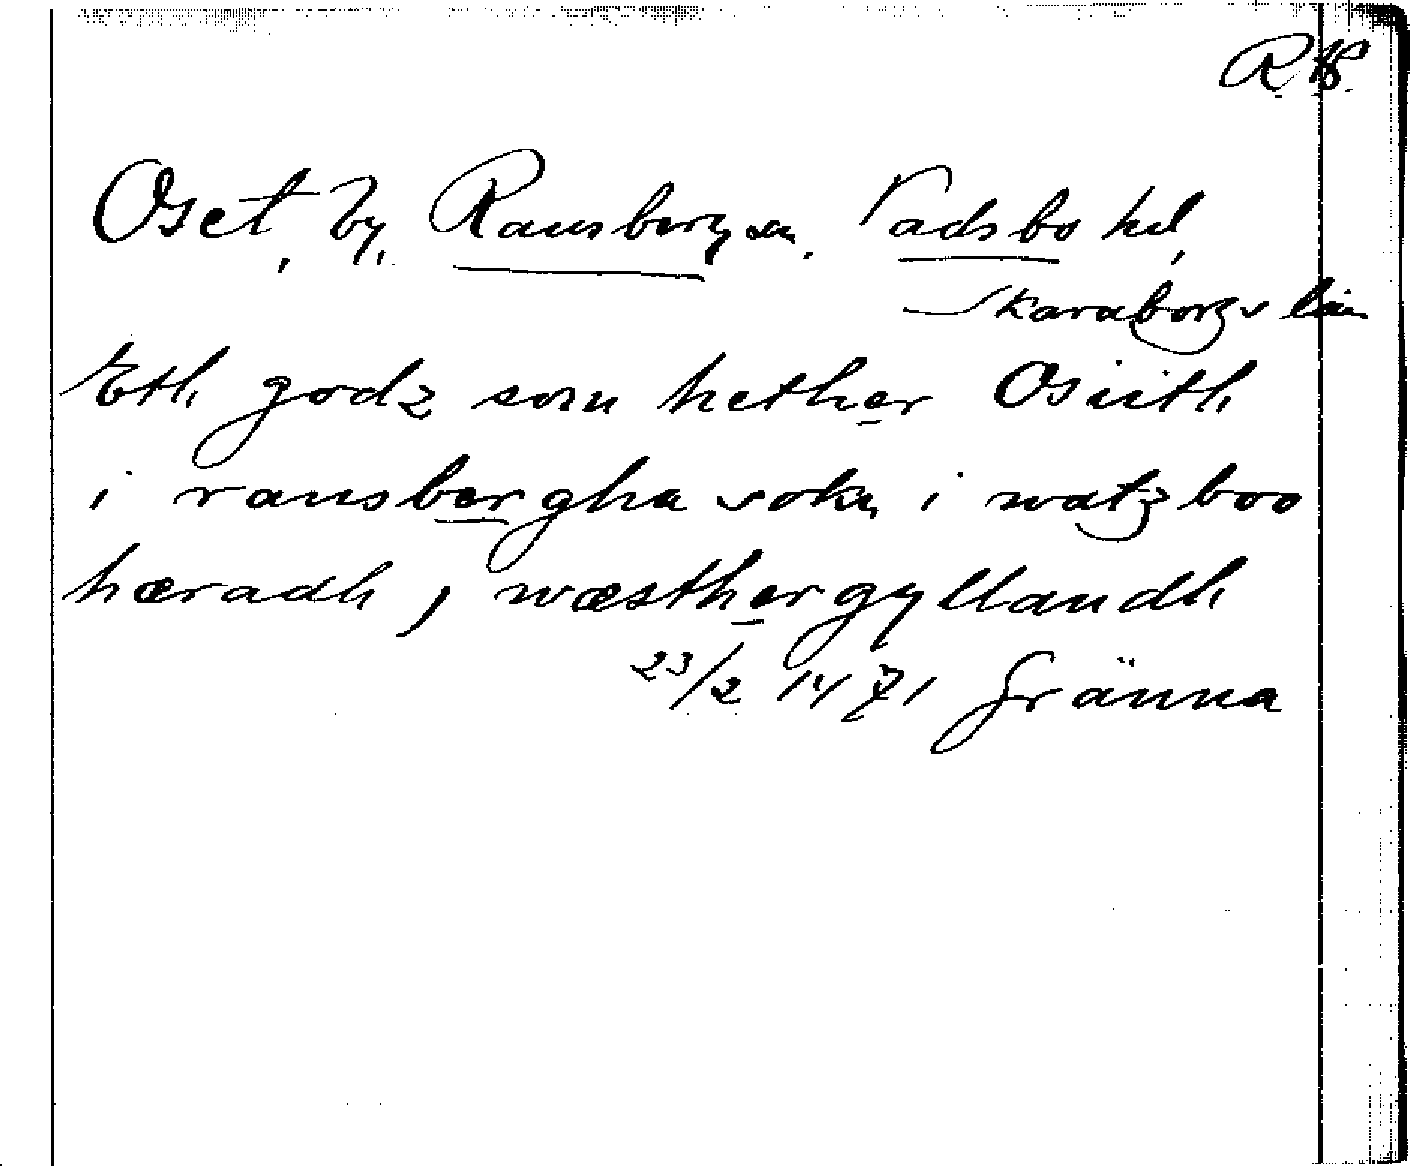 R.Ap.
Oset, by, Ransberg sn. Vadsbo hd,
Skaraborgs län
Eth godz som hether Osiith
i ransbergha sokn i watzboo
hæradh j wæsthergyllandh
23/2 1471 Gränna